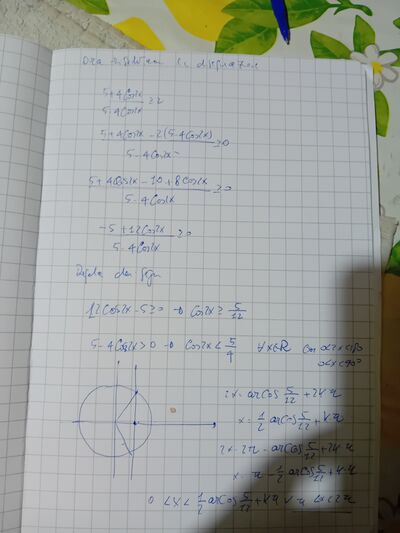 Ora risolviamo la disequazione
5+4Cos2x / 5-4Cos2x ≥2
5+4Cos2x -2(5-4Cos2x) / 5-4Cos2x ≥0
5+4Cos2x -10+8Cos2x / 5-4Cos2x ≥0
-5+12Cos2x / 5-4Cos2x ≥0
Regola dei segni
12Cos2x-5≥0 → Cos2x ≥ 5/12
5-4Cos2x>0 → Cos2x < 5/4 ∀x∈R Con 0<2x<180
0<x<90°
2x= arCos 5/12 +2Kπ
x= 1/2 arCos 5/12 +Kπ
2x=2π-arCos 5/12 +2Kπ
x=π-1/2 arCos 5/12 +Kπ
0 <x< 1/2 arCos 5/12 +Kπ